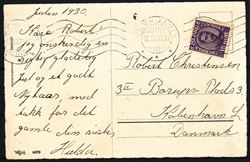 Julen 1930.
Kære Robert
jeg ønsker dig en
rigtig glædelig
Jul og et godt
Nytaar, med
tak for det
gamle den sidste
Hulda.
Robert Christensen
3III Plads 3
København
Danmark